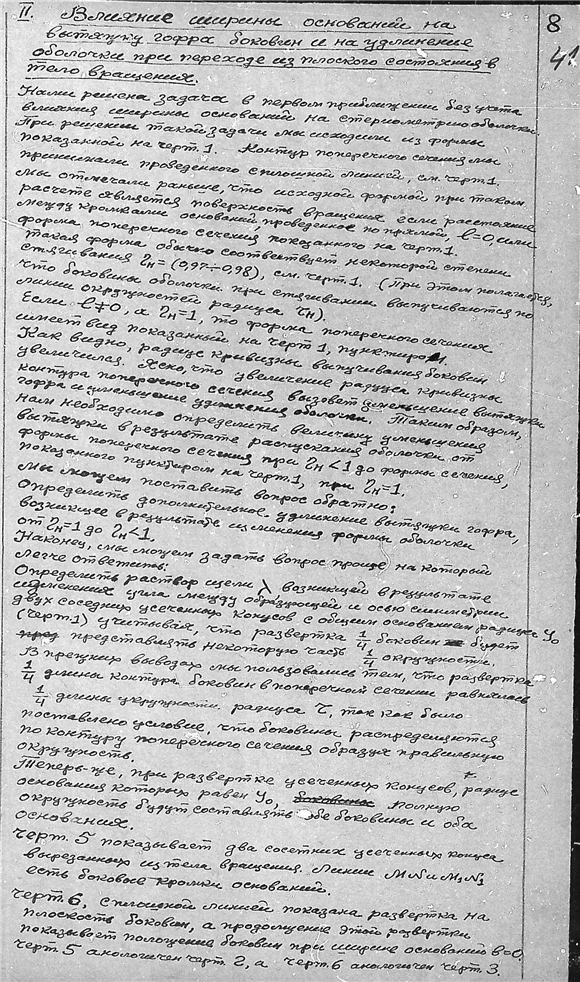 II. Влияние ширины оснований на
вытяжку гофра боковин и на удлинение
оболочки при переходе из плоского состояния в
тело вращения.
8
41
Нами решена задача в первом приближении без учета
влияния ширины оснований на стереометрию оболочки.
При решении такой задачи мы исходили из формы
показанной на черт. 1. Контур поперечного сечения мы
принимали проведенного сплошной линией, см. черт. 1.
Мы отмечали раньше, что исходной формой при таком
расчете является поверхность вращения если расстояние
между кромками оснований, проведенное по прямой, ℓ=0, или
форма поперечного сечения показанного на черт. 1.
Такая форма обычно соответствует некоторой степени
стягивания τн = (0,97÷0,98), см. черт. 1. (При этом полагается,
что боковины оболочки при стягивании выпучиваются по
линии окружностей радиуса τн).
Если ℓ≠0, а τн=1, то форма поперечного сечения
имеет вид показанный на черт 1, пунктиром.
Как видно, радиус кривизны выпучивания боковин
увеличился. Ясно, что увеличение радиуса кривизны
контура поперечного сечения вызовет уменьшение вытяжки
гофра и уменьшение удлинения оболочки. Таким образом,
нам необходимо определить величину уменьшения
вытяжки в результате распускания оболочки от
формы поперечного сечения при τн<1 до формы сечения,
показанного пунктиром на черт. 1, при τн=1.
Мы можем поставить вопрос обратно:
Определить дополнительное удлинение вытяжки гофра,
возникщее в результате изменения формы оболочки
от τн=1 до τн<1.
Наконец, мы можем задать вопрос проще, на который
легче ответить:
Определить раствор щели λ возникщей в результате
изменения угла между образующей и осью симметрии
двух соседних усеченных конусов с общим основанием, радиуса y₀
(черт. 1) учитывая, что развертка 1/4 боковин будет
представлять некоторую часть 1/4 окружности.
В прежних выводах мы пользовались тем, что развертка
1/4 длины контура боковин в поперечном сечении равнялась
1/4 длины окружности радиуса τ, так как было
поставлено условие, что боковины распределяются
по контуру поперечного сечения образуя правильную
окружность.
Теперь-же, при развертке усеченных конусов, радиус
основания которых равен y₀, полную
окружность будут составлять обе боковины и оба
основания.
Черт. 5 показывает два сосетних усеченных конуса
вырезанных из тела вращения. Линии MN и M₁N₁
есть боковые кромки оснований.
Черт. 6, сплошной линией показана развертка на
плоскость боковин, а продолжение этой развертки
показывает положение боковин при ширине оснований в=0.
Черт. 5 аналогичен черт. 2, а черт. 6 аналогичен черт. 3.